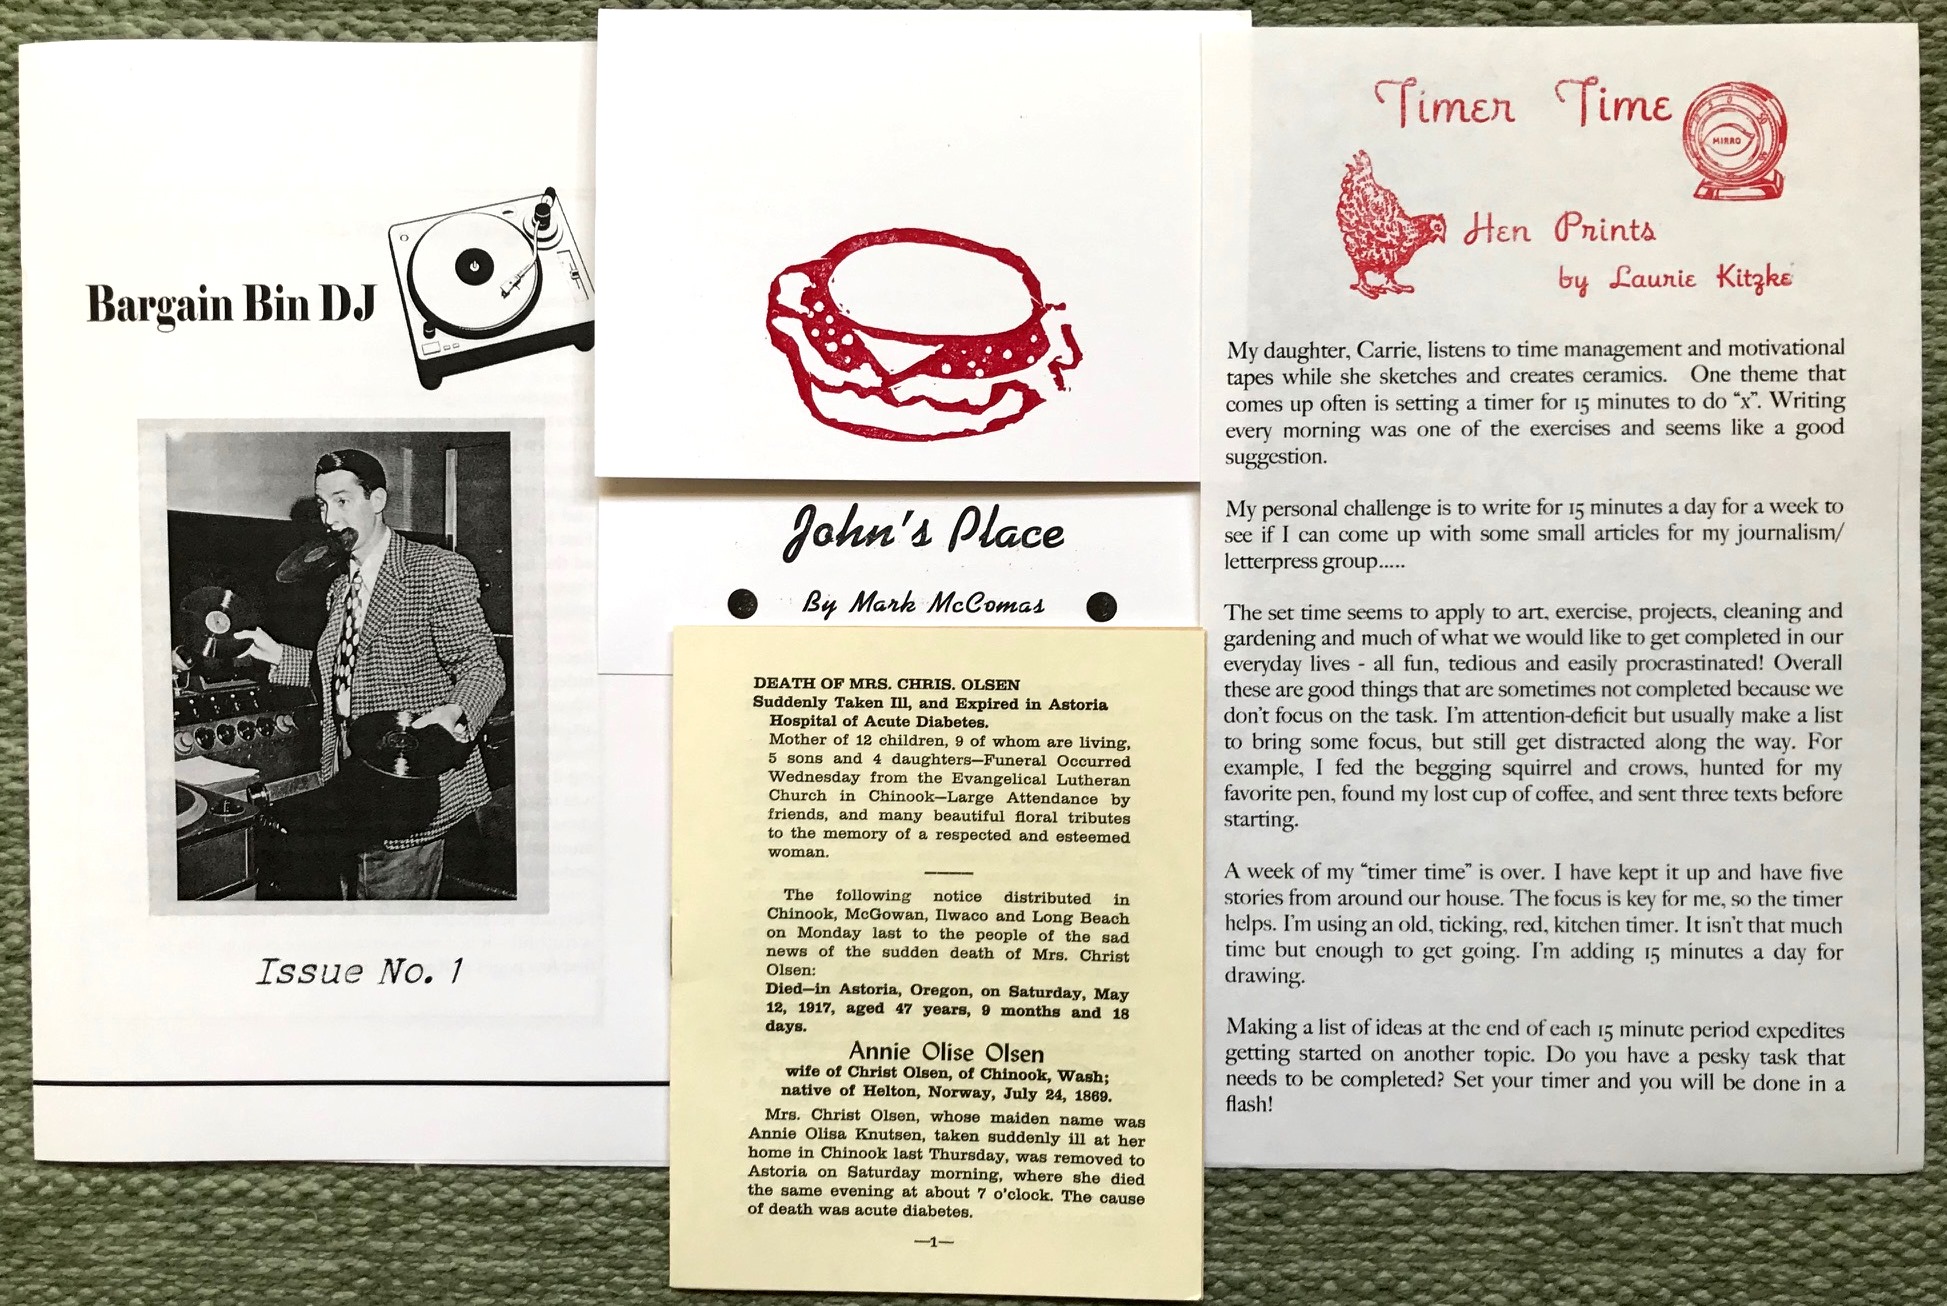 Bargain Bin DJ
Issue No. 1
John's Place
By Mark McComas
DEATH OF MRS. CHRIS. OLSEN
Suddenly Taken Ill, and Expired in Astoria
Hospital of Acute Diabetes.
Mother of 12 children, 9 of whom are living,
5 sons and 4 daughters—Funeral Occurred
Wednesday from the Evangelical Lutheran
Church in Chinook—Large Attendance by
friends, and many beautiful floral tributes
to the memory of a respected and esteemed
woman.
The following notice distributed in
Chinook, McGowan, Ilwaco and Long Beach
on Monday last to the people of the sad
news of the sudden death of Mrs. Christ
Olsen:
Died—in Astoria, Oregon, on Saturday, May
12, 1917, aged 47 years, 9 months and 18
days.
Annie Olise Olsen
wife of Christ Olsen, of Chinook, Wash;
native of Helton, Norway, July 24, 1869.
Mrs. Christ Olsen, whose maiden name was
Annie Olisa Knutsen, taken suddenly ill at her
home in Chinook last Thursday, was removed to
Astoria on Saturday morning, where she died
the same evening at about 7 o'clock. The cause
of death was acute diabetes.
—1—
Timer Time
MIRRO
Hen Prints
by Laurie Kitzke
My daughter, Carrie, listens to time management and motivational
tapes while she sketches and creates ceramics. One theme that
comes up often is setting a timer for 15 minutes to do “x”. Writing
every morning was one of the exercises and seems like a good
suggestion.
My personal challenge is to write for 15 minutes a day for a week to
see if I can come up with some small articles for my journalism/
letterpress group.....
The set time seems to apply to art, exercise, projects, cleaning and
gardening and much of what we would like to get completed in our
everyday lives - all fun, tedious and easily procrastinated! Overall
these are good things that are sometimes not completed because we
don't focus on the task. I'm attention-deficit but usually make a list
to bring some focus, but still get distracted along the way. For
example, I fed the begging squirrel and crows, hunted for my
favorite pen, found my lost cup of coffee, and sent three texts before
starting.
A week of my “timer time” is over. I have kept it up and have five
stories from around our house. The focus is key for me, so the timer
helps. I'm using an old, ticking, red, kitchen timer. It isn't that much
time but enough to get going. I'm adding 15 minutes a day for
drawing.
Making a list of ideas at the end of each 15 minute period expedites
getting started on another topic. Do you have a pesky task that
needs to be completed? Set your timer and you will be done in a
flash!